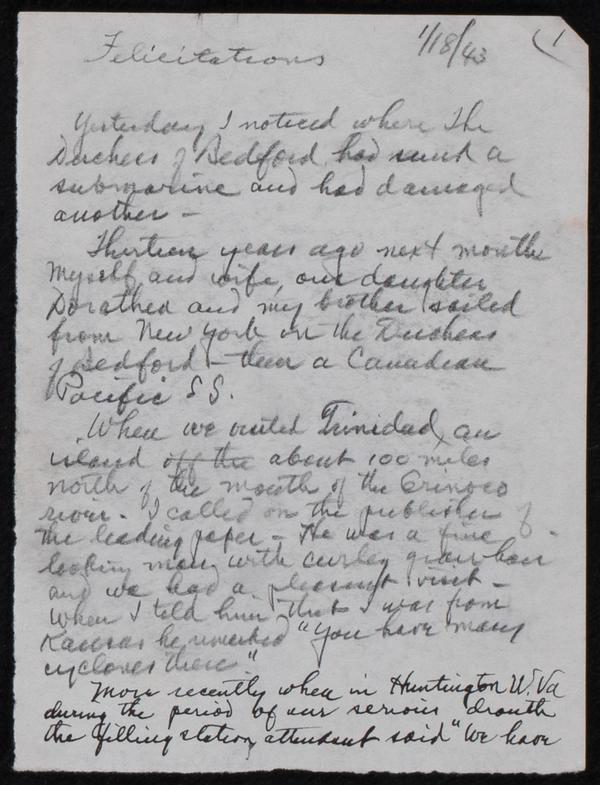 Felicitations 1/18/43 (1
Yesterday I noticed where the
Duchess of Bedford had sunk a
submarine and had damaged
another –
Thirteen years ago next month
myself and wife, our daughter
Dorathea and my brother sailed
from New York on the Duchess
of Bedford – then a Canadian
Pacific S S.
When we visited Trinidad, an
island off the about 100 miles
north of the mouth of the Orinoco
river – I called on the publisher of
the leading paper – He was a fine
looking man with curley gray hair
and we had a pleasant visit –
When I told him that I was from
Kansas he remarked "You have many
cyclones there"
More recently when in Huntington W. Va
during the period of our serious drouth
the filling station attendant said "We have